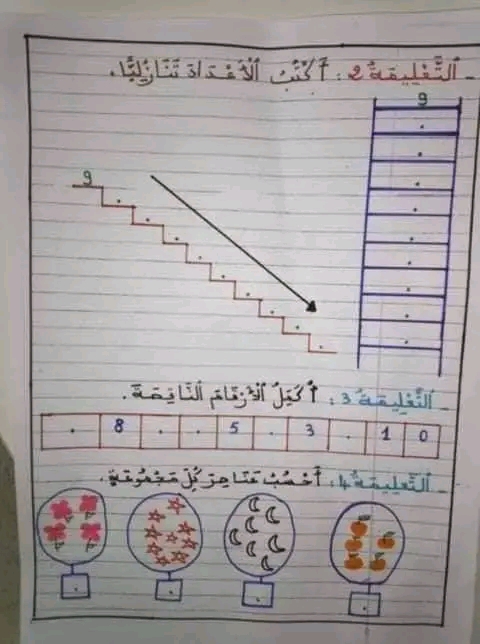 - التَّعْلِيمَةُ 2 : أَكْتُبُ الْأَعْدَادَ تَنَازُلِيًّا.
9
9
- التَّعْلِيمَةُ 3 : أُكْمِلُ الْأَرْقَامَ النَّاقِصَةَ.
. 8 . . 5 . 3 . 1 0
- التَّعْلِيمَةُ 4 : أَحْسُبُ عَنَاصِرَ كُلِّ مَجْمُوعَةٍ.